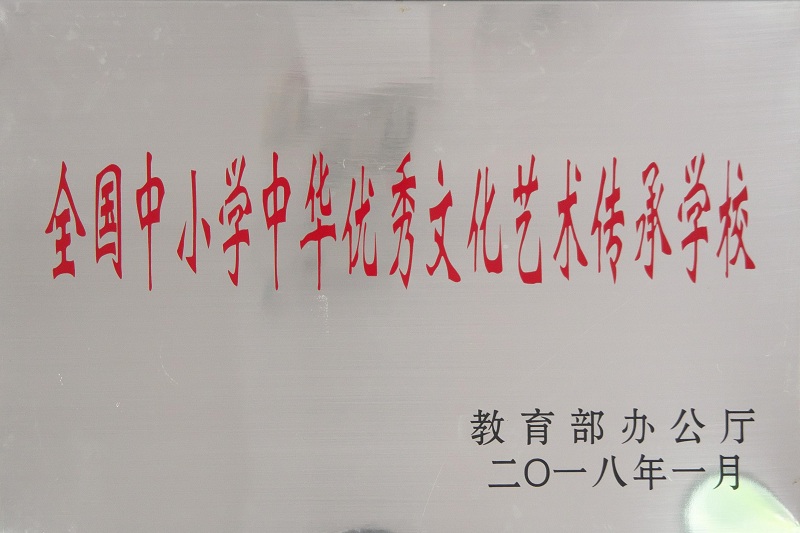 全国中小学中华优秀文化艺术传承学校
教育部办公厅
二〇一八年一月